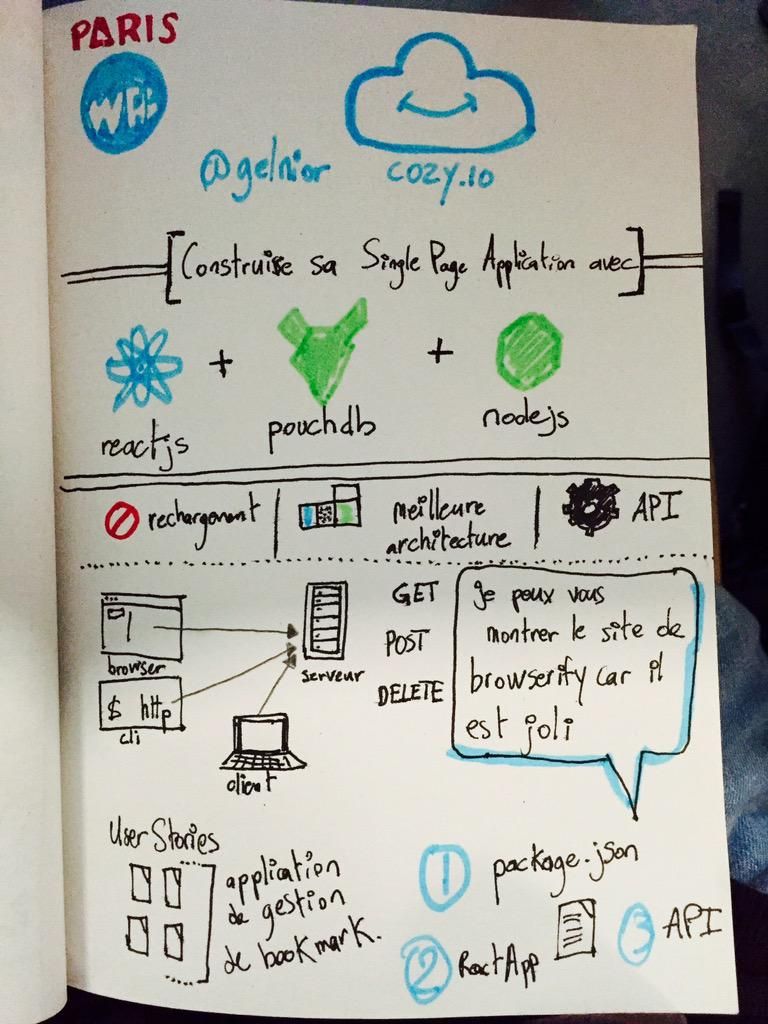 PARIS
@gelnior
cozy.io
[Construire sa Single Page Application avec]
+
+
reactjs
pouchdb
nodejs
rechargement
meilleure
architecture
API
browser
$ http
cli
serveur
client
GET
POST
DELETE
je peux vous
montrer le site de
browserify car il
est joli
User Stories
application
de gestion
de bookmark.
1 package.json
2 React App
3 API